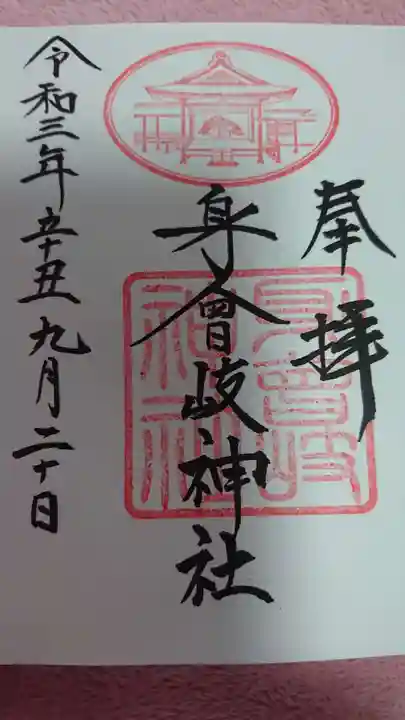 奉拝
身曾岐神社
令和三年辛丑九月二十日
身曾岐
神社